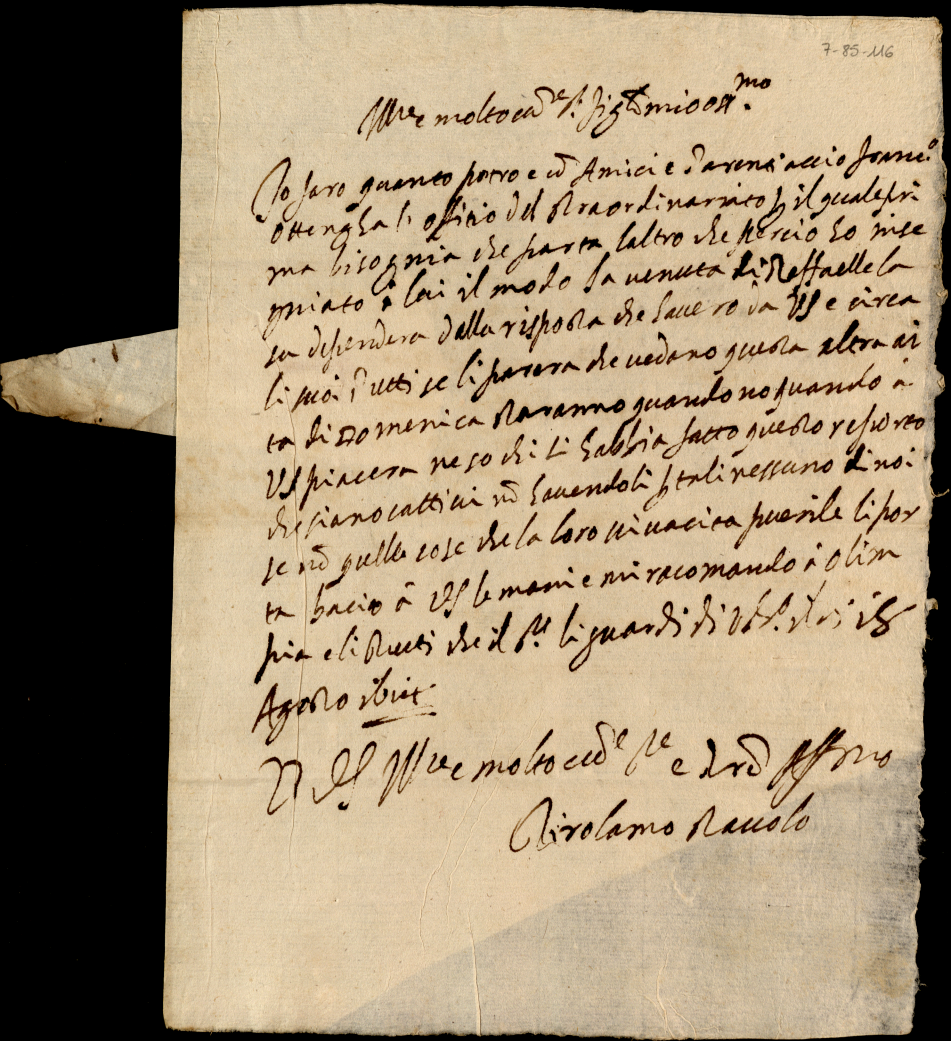 7-85-116
Ill.re e molto ecc.te S.r sig.r mio oss.mo
Io faro quanto potro e cō Amici e Parenti accio franc.o
ottengha l'ofitio del straordinariato p il quale pri
ma bisognia che parta laltro che percio ho inse
gniato à lui il modo la venuta di Reffaelle la
sa dependera dalla risposta che havero da VS e circa
li suoi Putti se li parera che vedano questa altra ai
ta di Domenica staranno quando no quando à
VS piacera ne so chi li habbia fatto questo reporto
che siano cattivi nō havendoli p tali nessuno di noi
se nō quelle cose che la loro vivacita puerile li por
ta bacio à VS le mani e mi racomando à Olim
pia e li Putti che il S.r li guardi di
Agosto
D VS Ill.re e molto ecc.te S.re
Girolamo Stavolo